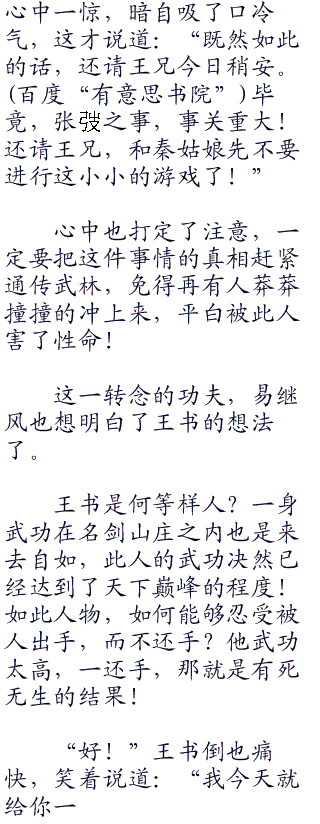 心中一惊，暗自吸了口冷
气，这才说道：“既然如此
的话，还请王兄今日稍安。
(百度“有意思书院”)毕
竟，张弢之事，事关重大！
还请王兄，和秦姑娘先不要
进行这小小的游戏了！”
心中也打定了注意，一
定要把这件事情的真相赶紧
通传武林，免得再有人莽莽
撞撞的冲上来，平白被此人
害了性命！
这一转念的功夫，易继
风也想明白了王书的想法
了。
王书是何等样人？一身
武功在名剑山庄之内也是来
去自如，此人的武功决然已
经达到了天下巅峰的程度！
如此人物，如何能够忍受被
人出手，而不还手？他武功
太高，一还手，那就是有死
无生的结果！
“好！”王书倒也痛
快，笑着说道：“我今天就
给你一